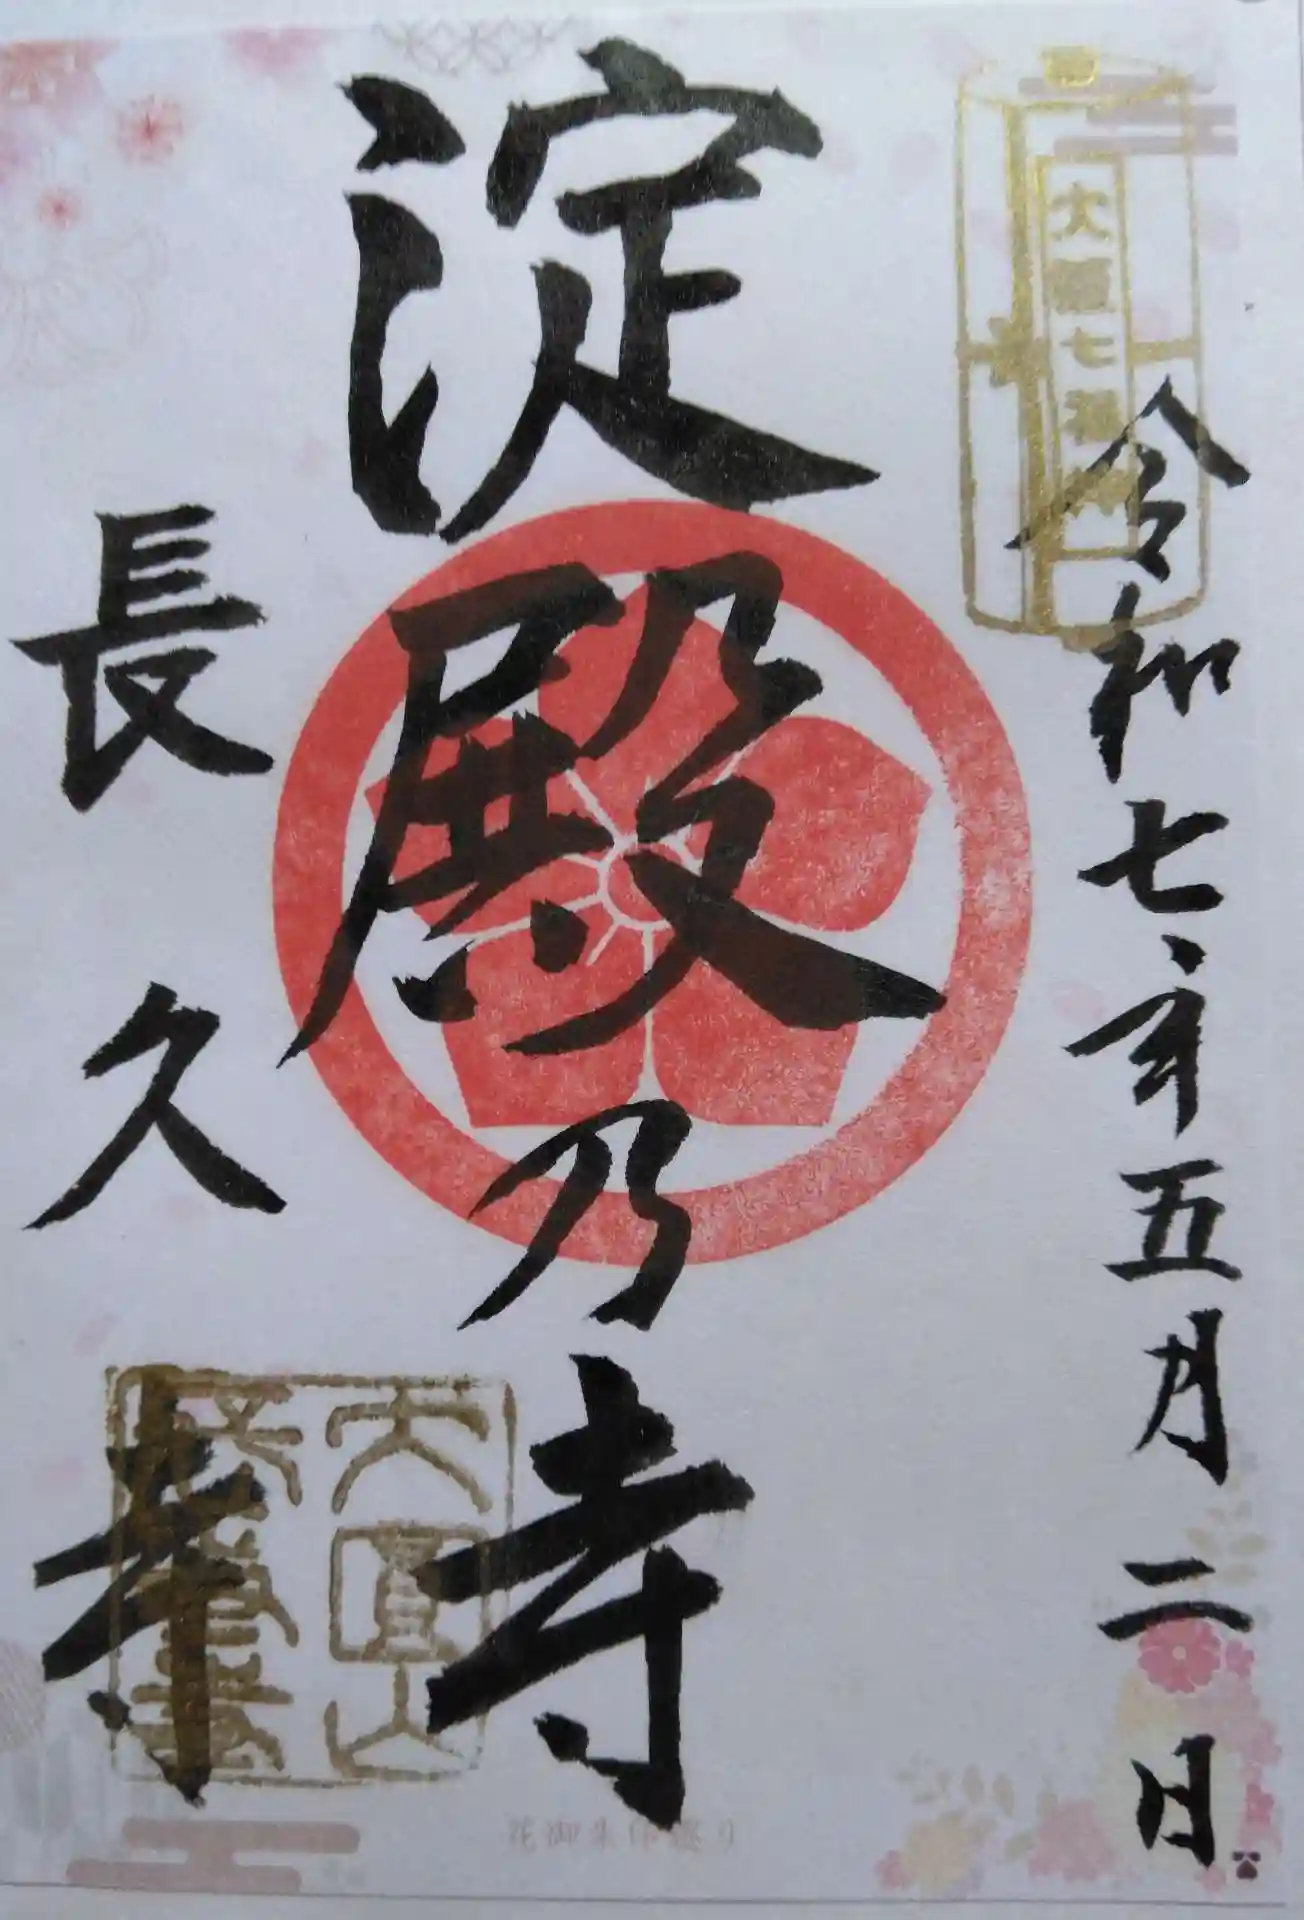 大阪七福神
令和七年五月二日
淀殿乃寺
長久寺
大圓山
花御朱印巡り